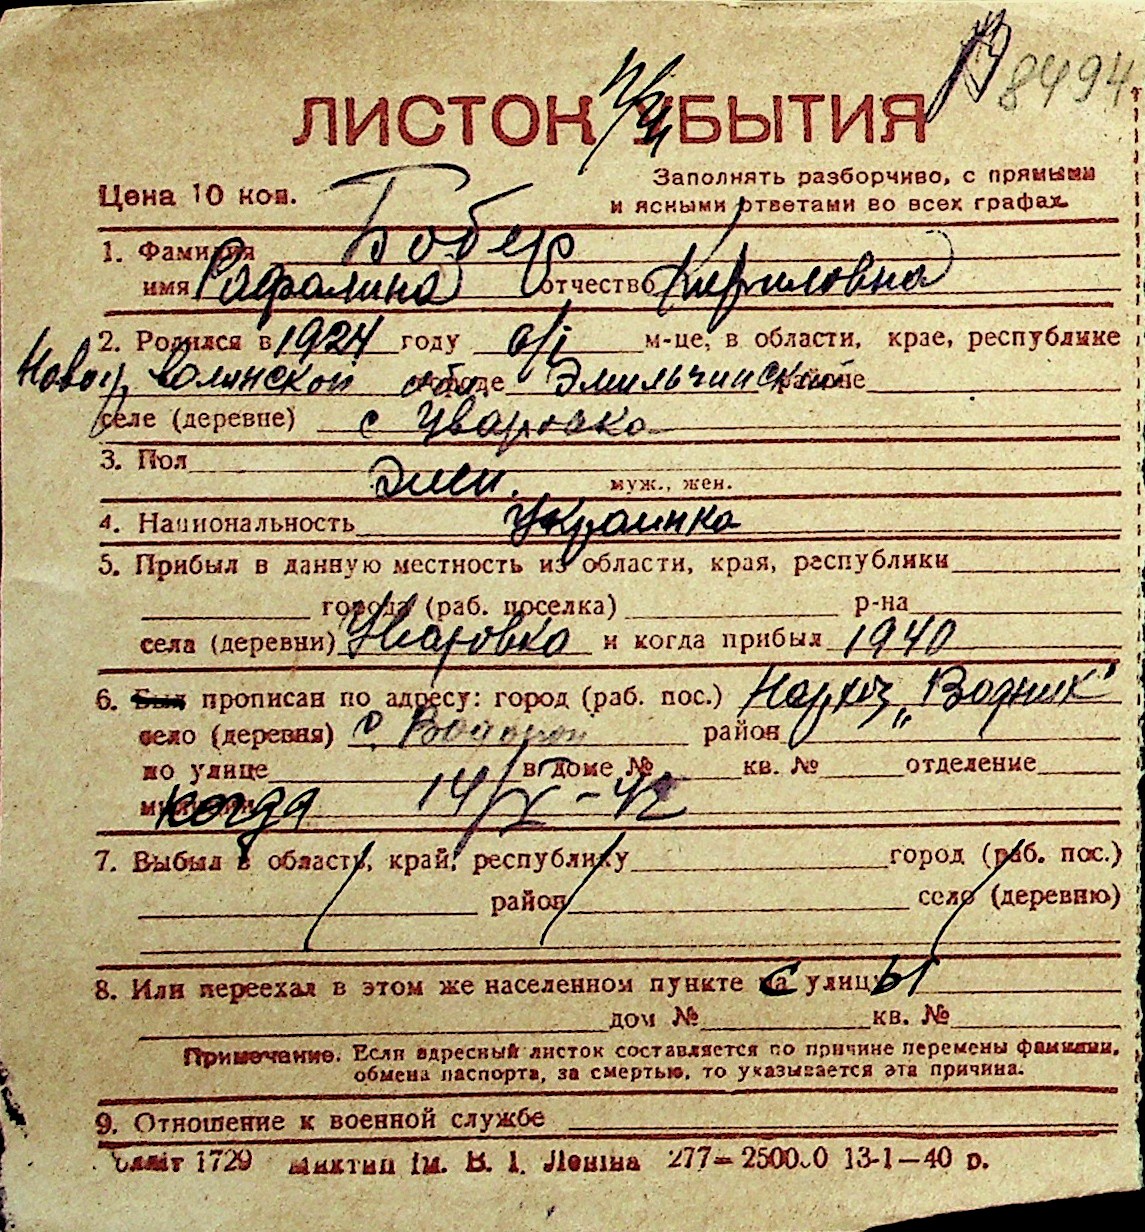 8494
ЛИСТОК УБЫТИЯ
Цена 10 коп.
Заполнять разборчиво, с прямыми
и ясными ответами во всех графах.
1. Фамилия Бобер
имя Рафалина отчество Кириловна
2. Родился в 1924 году 6/I м-це, в области, крае, республике
Новогр. Волинской обл. городе Эмильчинский районе
селе (деревне) с Уваровка
3. Пол жен. муж., жен.
4. Национальность Украинка
5. Прибыл в данную местность из области, края, республики
города (раб. поселка) р-на
села (деревни) Уваровка и когда прибыл 1940
6. Был прописан по адресу: город (раб. пос.) "Водник"
село (деревня) с. район
по улице в доме № кв. № отделение
когда 14/X-42
7. Выбыл в область, край, республику город (раб. пос.)
район село (деревню)
8. Или переехал в этом же населенном пункте с улицы
дом № кв. №
Примечание. Если адресный листок составляется по причине перемены фамилии,
обмена паспорта, за смертью, то указывается эта причина.
9. Отношение к военной службе
1729 ім. В. І. Леніна 277—250000 13-1—40 р.